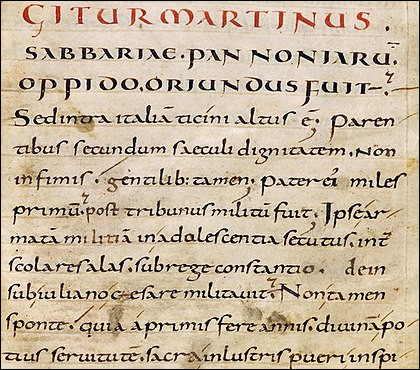 GITUR MARTINUS.
SABBARIAE·PANNONIARŪ
OPPIDO. ORIUNDUS FUIT·
Sed intra italiā ticini altus ē. Paren
tibus secundum saeculi dignitatem. Non
infimis. gentilib: tamen; Pater ei miles
primū. post tribunus militū fuit. Ipse ar
matā militiā in adolescentia secutus. int
scolares alas. sub rege constantio. dein
sub iuliano cęesare militavit. Non tamen
sponte. quia a primis fere annis. divinā po
tius servitutē. sacra inlustris pueri inspi